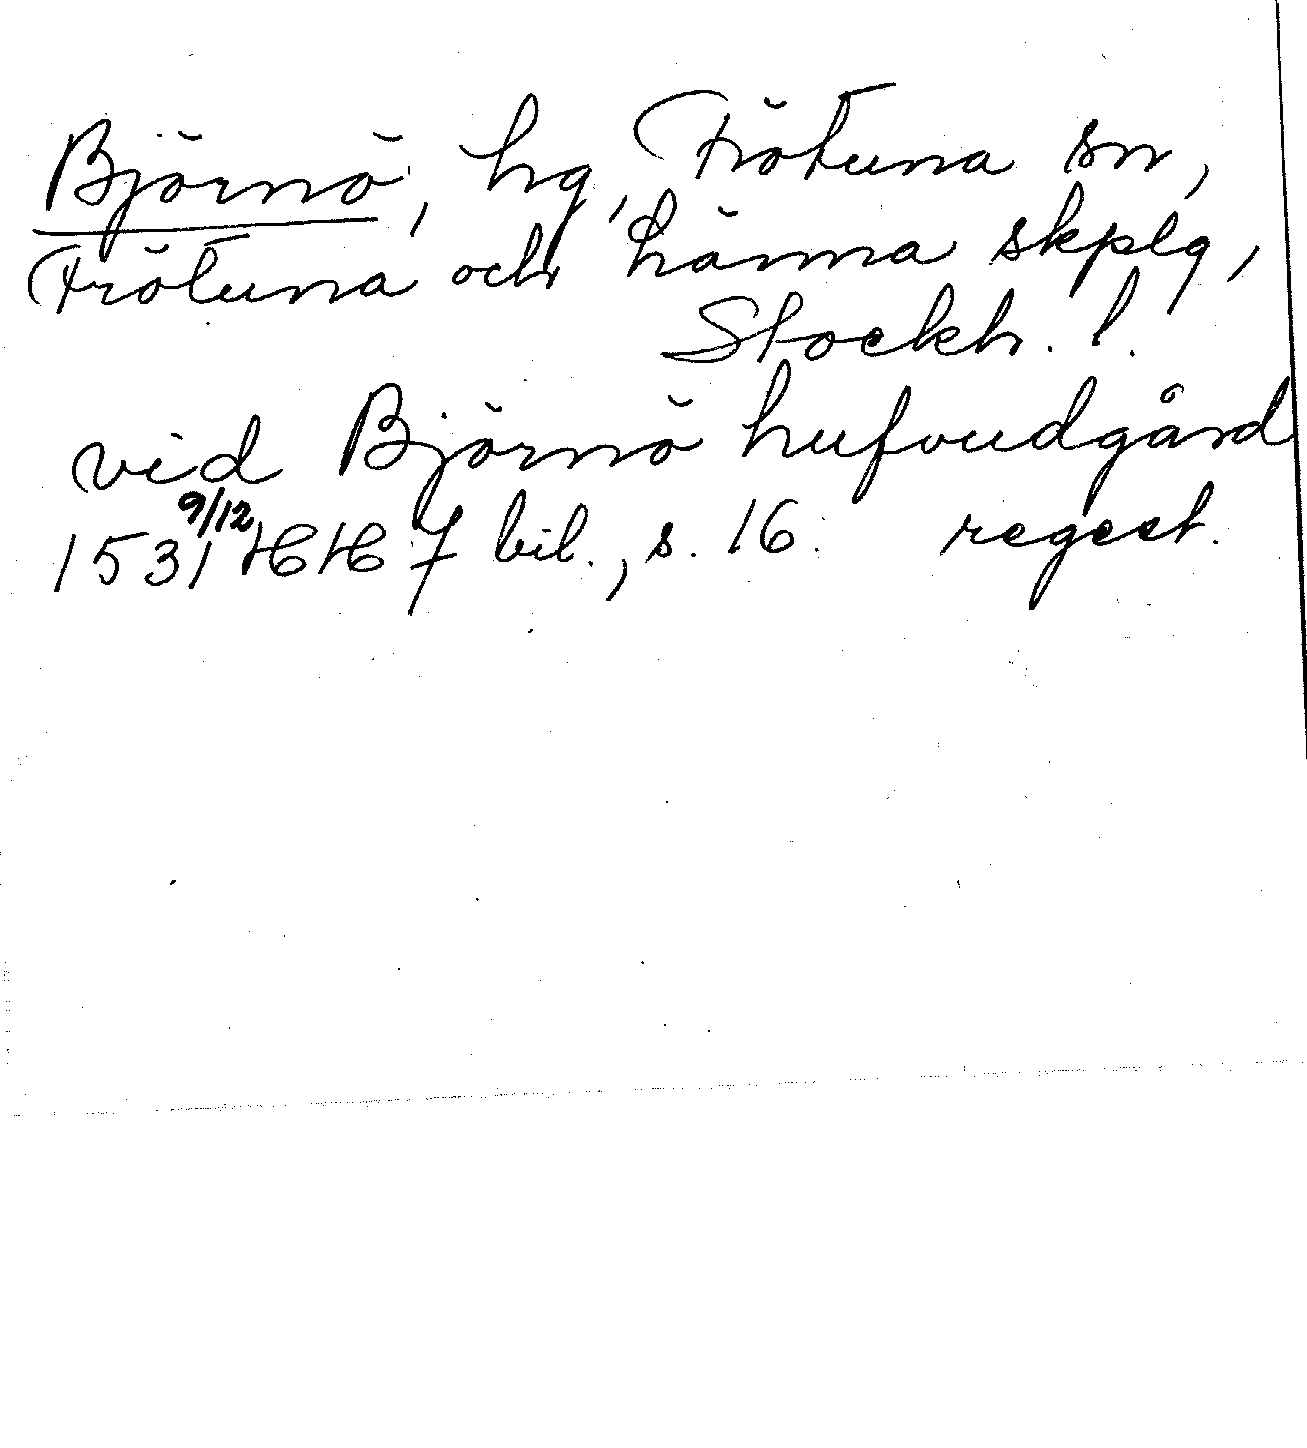 Björnö, hg, Frötuna sn,
Frötuna och Länna skplg,
Stockh. l.
vid Björnö hufvudgård
1531 9/12 HH 7 bil., s. 16. regest.